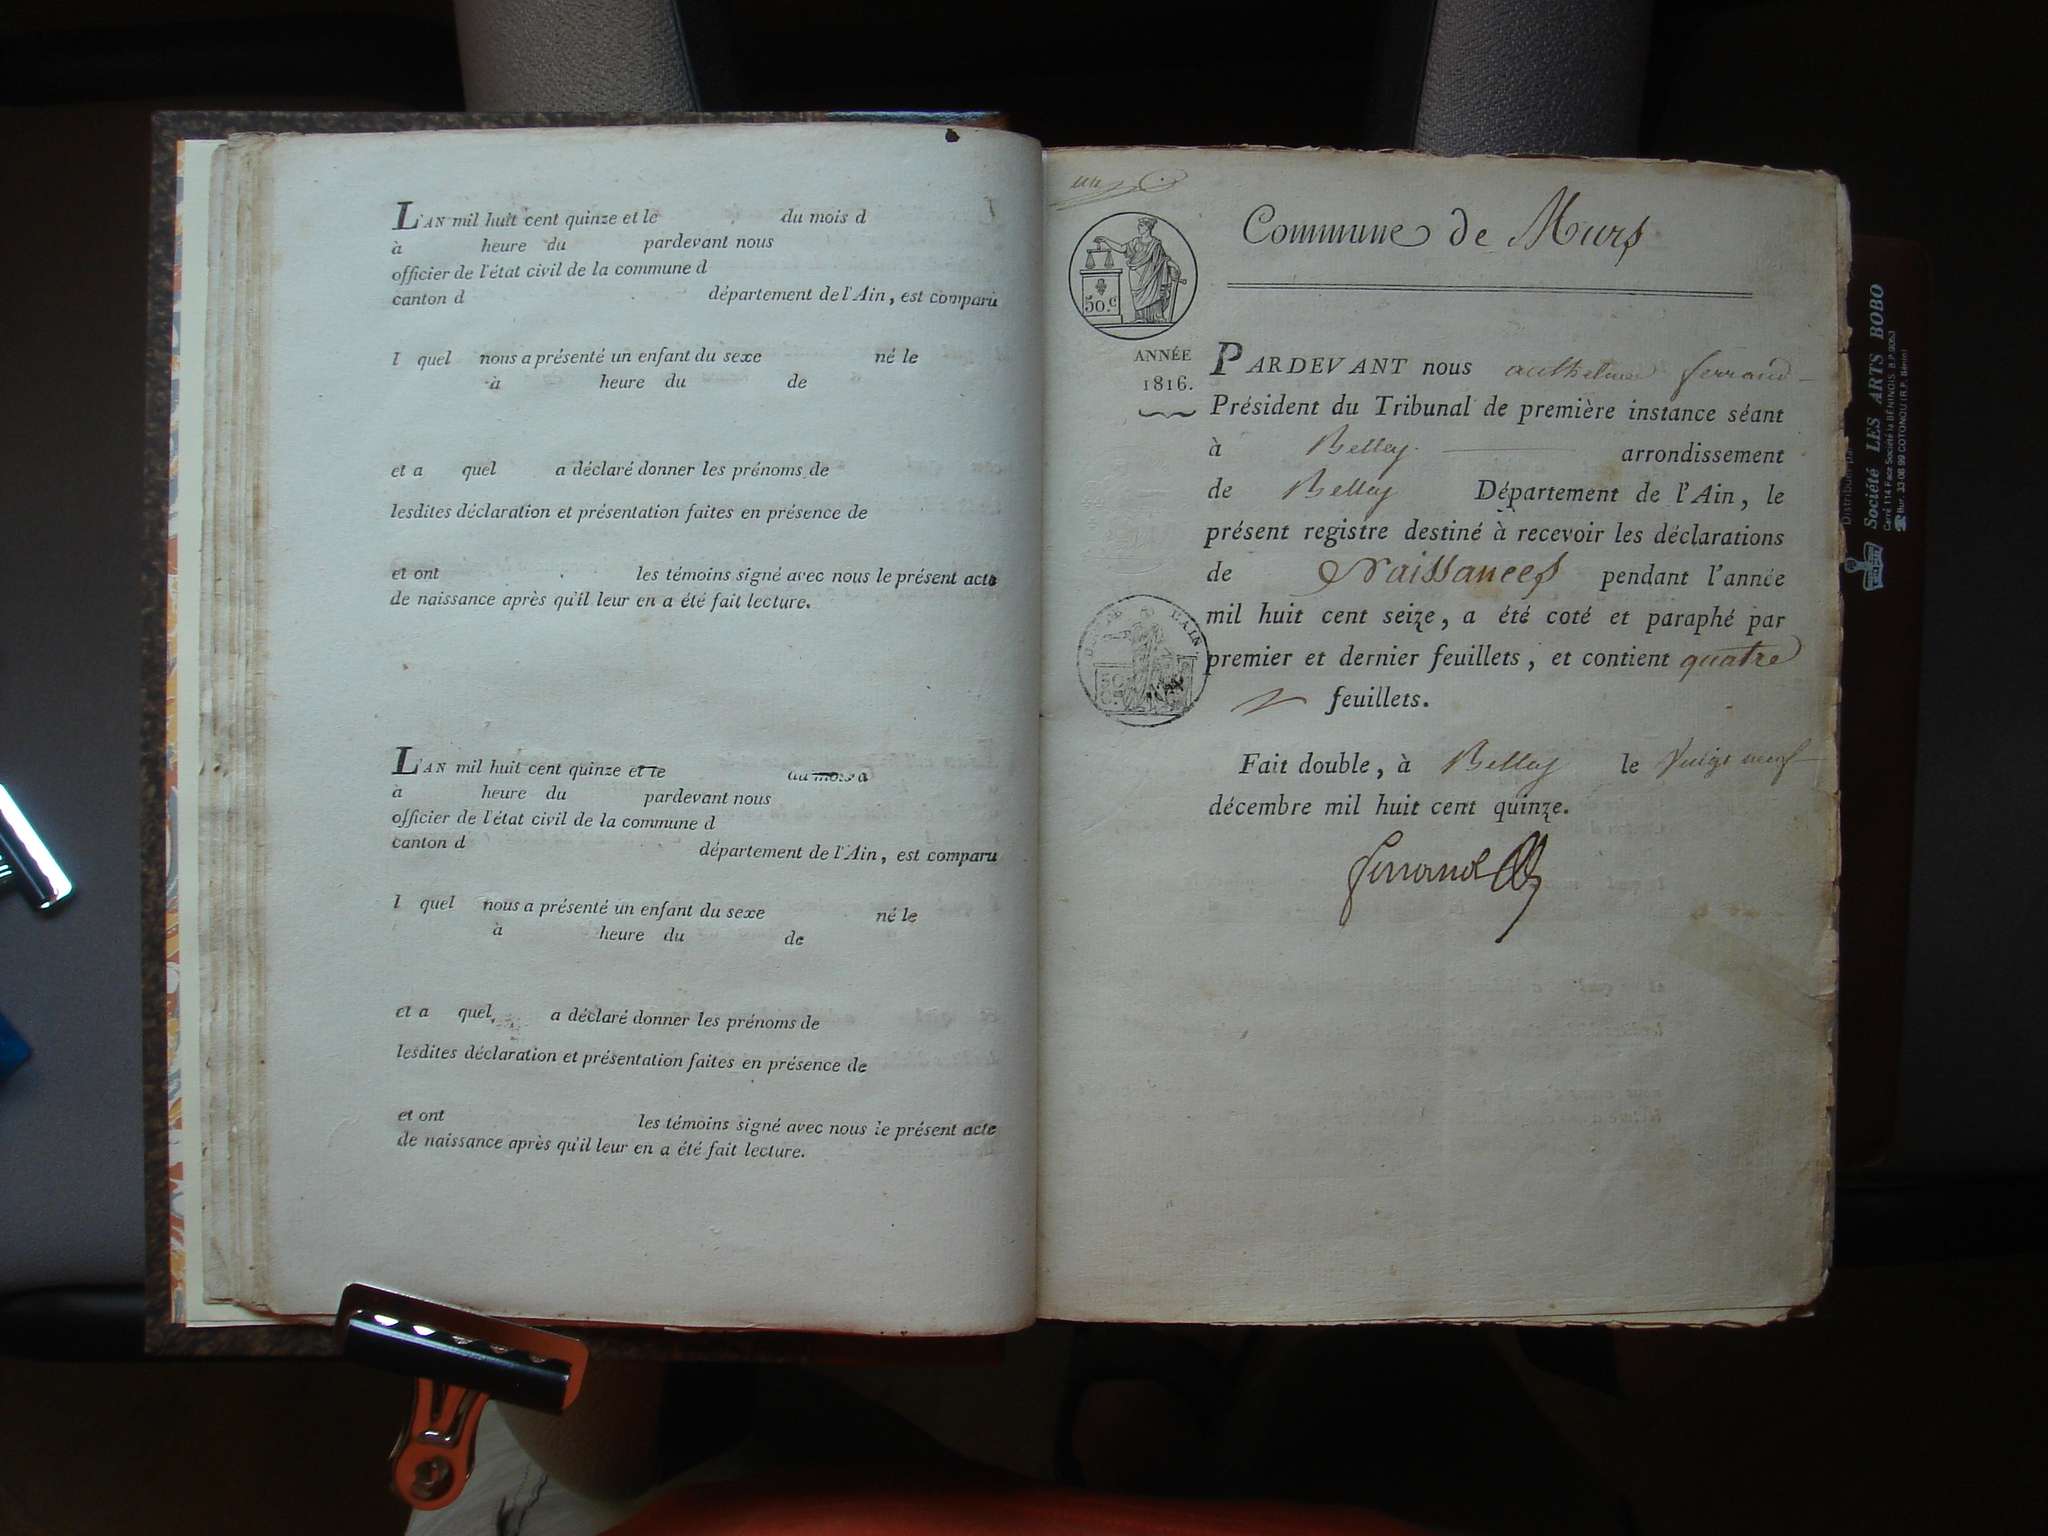 L'AN mil huit cent quinze et le du mois d
à heure du pardevant nous
officier de l'état civil de la commune d
canton d département de l'Ain, est comparu
l quel nous a présenté un enfant du sexe né le
à heure du de
et a quel a déclaré donner les prénoms de
lesdites déclaration et présentation faites en présence de
et ont les témoins signé avec nous le présent acte
de naissance après qu'il leur en a été fait lecture.
L'AN mil huit cent quinze et le du mois d
à heure du pardevant nous
officier de l'état civil de la commune d
canton d département de l'Ain, est comparu
l quel nous a présenté un enfant du sexe né le
à heure du de
et a quel a déclaré donner les prénoms de
lesdites déclaration et présentation faites en présence de
et ont les témoins signé avec nous le présent acte
de naissance après qu'il leur en a été fait lecture.
un
Commune de Murs
50.c
ANNÉE
1816.
PARDEVANT nous anthelme ferrand
Président du Tribunal de première instance séant
à Belley arrondissement
de Belley Département de l'Ain, le
présent registre destiné à recevoir les déclarations
de Naissances pendant l'année
mil huit cent seize, a été coté et paraphé par
premier et dernier feuillets, et contient quatre
feuillets.
L'AIN
50
Fait double, à Belley le vingt neuf
décembre mil huit cent quinze.
ferrand
Distribué par
Société LES ARTS BOBO
Carré 114 Face Société la BÉNINOIS B.P. 9063
Bur. 33 08 99 COTONOU (R.P. Bénin)